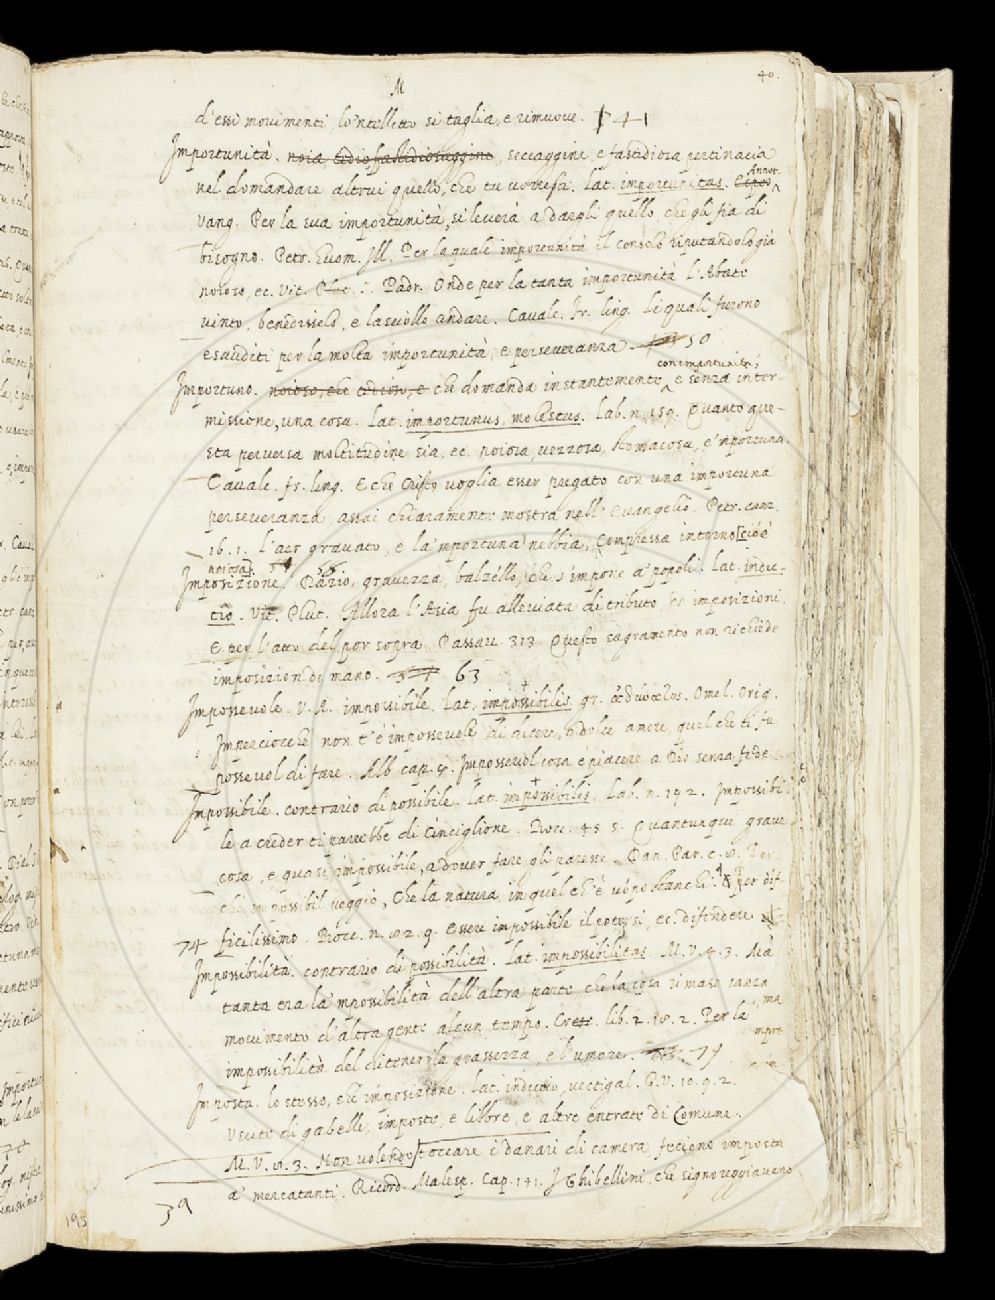 40.
M
d'essi movimenti, lo'ntelletto si taglia, e rimuove. 41
Importunità. noia, tedio, fastidiosaggine, seccaggine, e fastidiosa pertinacia
nel domandare altrui quello, che tu vorresti. Lat. importunitas. Espos. Annot.
Vang. Per la sua importunità, si leverà a dargli quello, che gli fia di
bisogno. Petr. Huom. Ill. Per la quale importunità il consolo riputandolo già
noioso, ec. Vit. Plut. S. Padr. Onde per la tanta importunità l'Abate
vinto, benedisselo, e lasciollo andare. Cavalc. fr. ling. Li quali furono
esauditi per la molta importunità, e perseveranza. 50
Importuno. noioso, che tedioso, e che domanda instantemente, con importunità, e senza inter-
missione, una cosa. Lat. importunus, molestus. Lab. n. 159. Quanto que-
sta perversa moltitudine sia, ec. noiosa, vezzosa, stomacosa, e'mportuna.
Cavalc. fr. ling. E che Cristo voglia esser pregato con una importuna
perseveranza, assai chiaramente mostra nell'Evangelio. Petr. canz.
16. 1. L'aer gravato, e la 'mportuna nebbia, Compressa intorno [cioè
noiosa].
Imposizione. Dazio, gravezza, balzello, che s'impone a' popoli. Lat. indic-
tio. Vit. Plut. Allora l'Asia fu alleviata di tributo, ed imposizioni.
E per l'atto del por sopra. Passav. 313. Questo sagramento non richiede
imposizion di mano. 63
Impossevole. V. A. impossibile. Lat. impossibilis. gr. ἀδύνατος. Omel. Orig.
Imperciocchè non t'è impossevole di altere, o dolce amore, quel che ti fu
possevol di fare. Alb. cap. 4. Impossevol cosa è piacere a Dio senza fede.
Impossibile. contrario di possibile. Lat. impossibilis. Lab. n. 192. Impossibi-
le a creder ti parrebbe di Cinciglione. Bocc. 45. 5. Quantunque grave
cosa, e quasi impossibile, a dover fare gli paresse. Dan. Par. c. 8.
Ch'impossibil veggio, Che la natura, in quel ch'è uopo stanchi. per dif-
74 ficilissimo. Bocc. n. 82. 9. Essere impossibile il potersi, ec. difendere
Impossibilità. contrario di possibilità. Lat. impossibilitas. M. V. 4. 3. Ma
tanta era la 'mpossibilità dell'altra parte che la cosa rimase sanza
movimento d'altra gente alcun tempo. Cresc. lib. 2. 18. 2. Per la
impossibilità del ritener la grassezza, e l'umore. 79
Imposta. lo stesso, che imposizione. Lat. indictio, vectigal. G. V. 10. 9. 2.
Uscite di gabelle, imposte, e libbre, e altre entrate di Comune.
M. V. 8. 3. Non volendo toccare i danari di camera feciono imposta
a' mercatanti. Ricord. Malesp. cap. 141. I Ghibellini, che signoreggiaveno
39
195